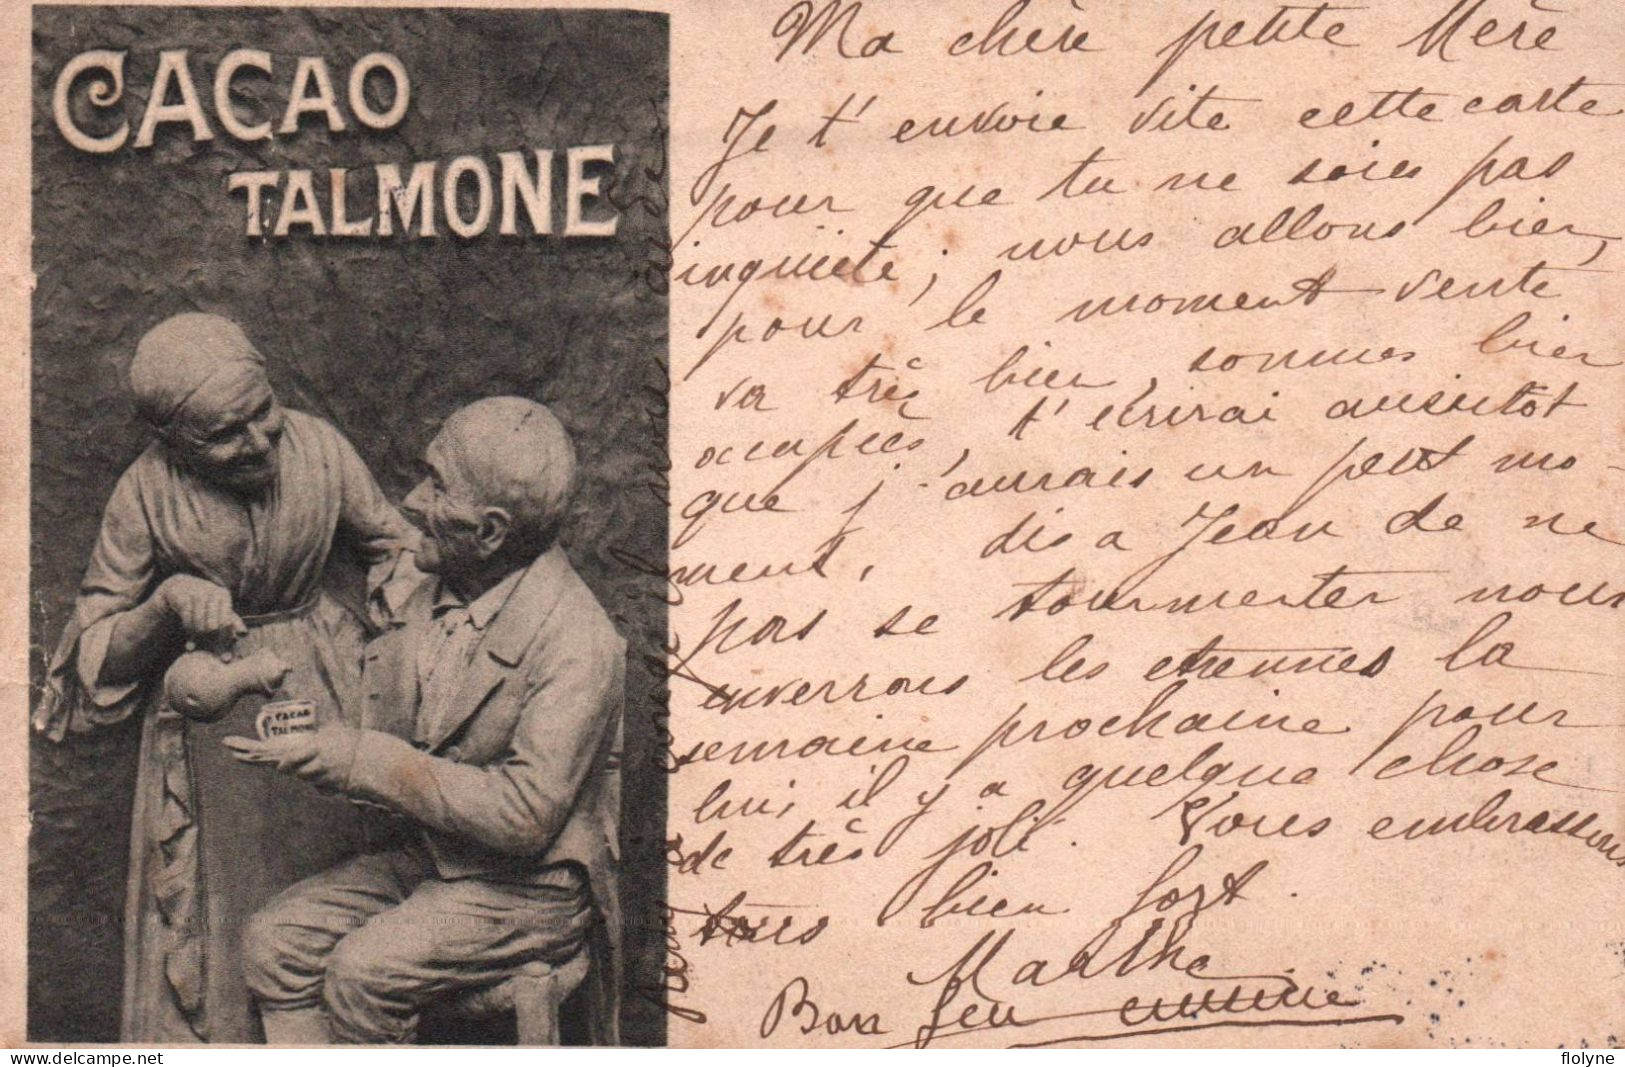 CACAO
TALMONE
CACAO
TALMONE
Ma chère petite Mère
Je t'envoie vite cette carte
pour que tu ne soies pas
inquiète; nous allons bien,
pour le moment vente
va très bien, sommes bien
occupées, t'écrirai ausitôt
que j'aurais un petit mo-
ment, dis a Jean de ne
pas se tourmenter nous
enverrons les etrennes la
semaine prochaine pour
lui, il y a quelque chose
de très joli. Vous embrassons
tous bien fort.
Marthe
Bon feu
flolyne